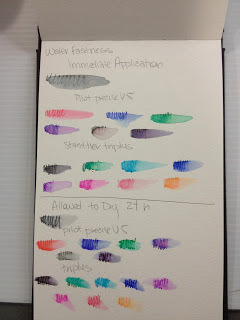 Water fastness
Immediate Application
Pilot precise V5
Staedtler triplus
Allowed to Dry 24 h
pilot precise V5
triplus